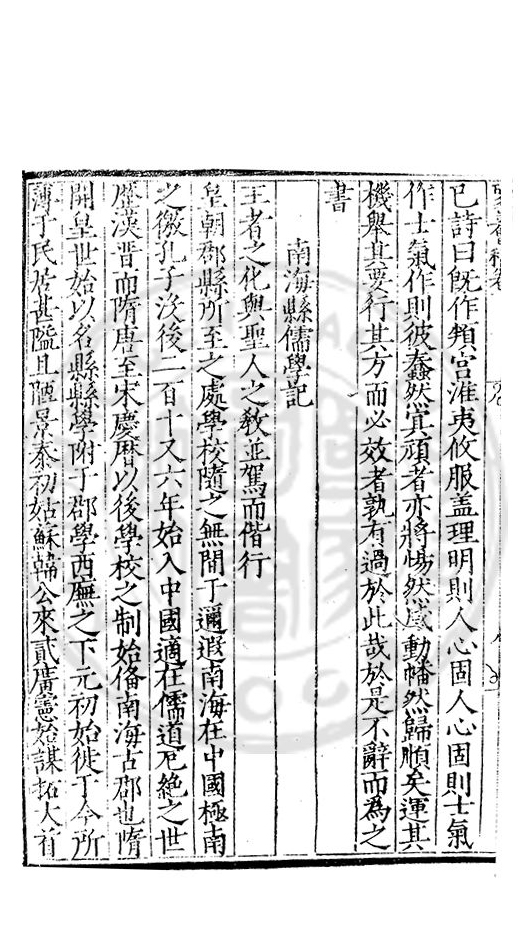 已詩曰旣作頖宫淮夷攸服盖理明則人心固人心固則士氣
作士氣作則彼蠢然冥頑者亦將惕然感動幡然歸順矣運其
機舉其要行其方而必效者孰有過於此哉於是不辭而為之
書
南海縣儒學記
王者之化與聖人之敎並駕而偕行
皇朝郡縣所至之處學校隨之無間于邇遐南海在中國極南
之徼孔子没後二百十又六年始入中國適在儒道厄絶之世
歴漢晋而隋唐至宋慶曆以後學校之制始備南海古郡也隋
開皇世始以名縣縣學附于郡學西廡之下元初始徙于今所
薄于民居甚隘且陋景泰初姑蘇韓公來貳廣憲始謀拓大首